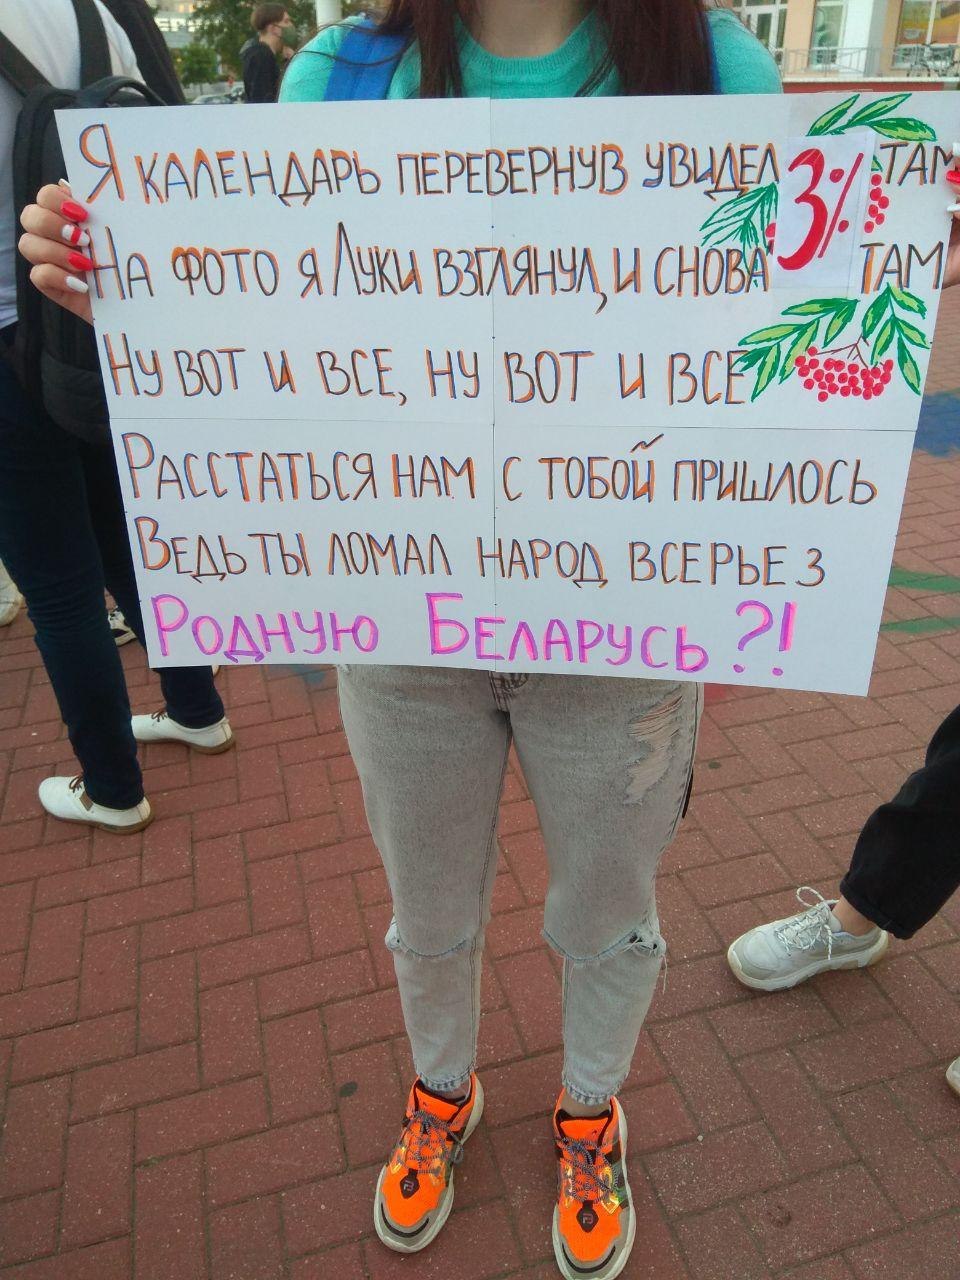 Я КАЛЕНДАРЬ ПЕРЕВЕРНУВ УВИДЕЛ 3% ТАМ
НА ФОТО Я ЛУКИ ВЗГЛЯНУЛ, И СНОВА 3% ТАМ
НУ ВОТ И ВСЕ, НУ ВОТ И ВСЕ
РАССТАТЬСЯ НАМ С ТОБОЙ ПРИШЛОСЬ
ВЕДЬ ТЫ ЛОМАЛ НАРОД ВСЕРЬЕЗ
РОДНУЮ БЕЛАРУСЬ?!